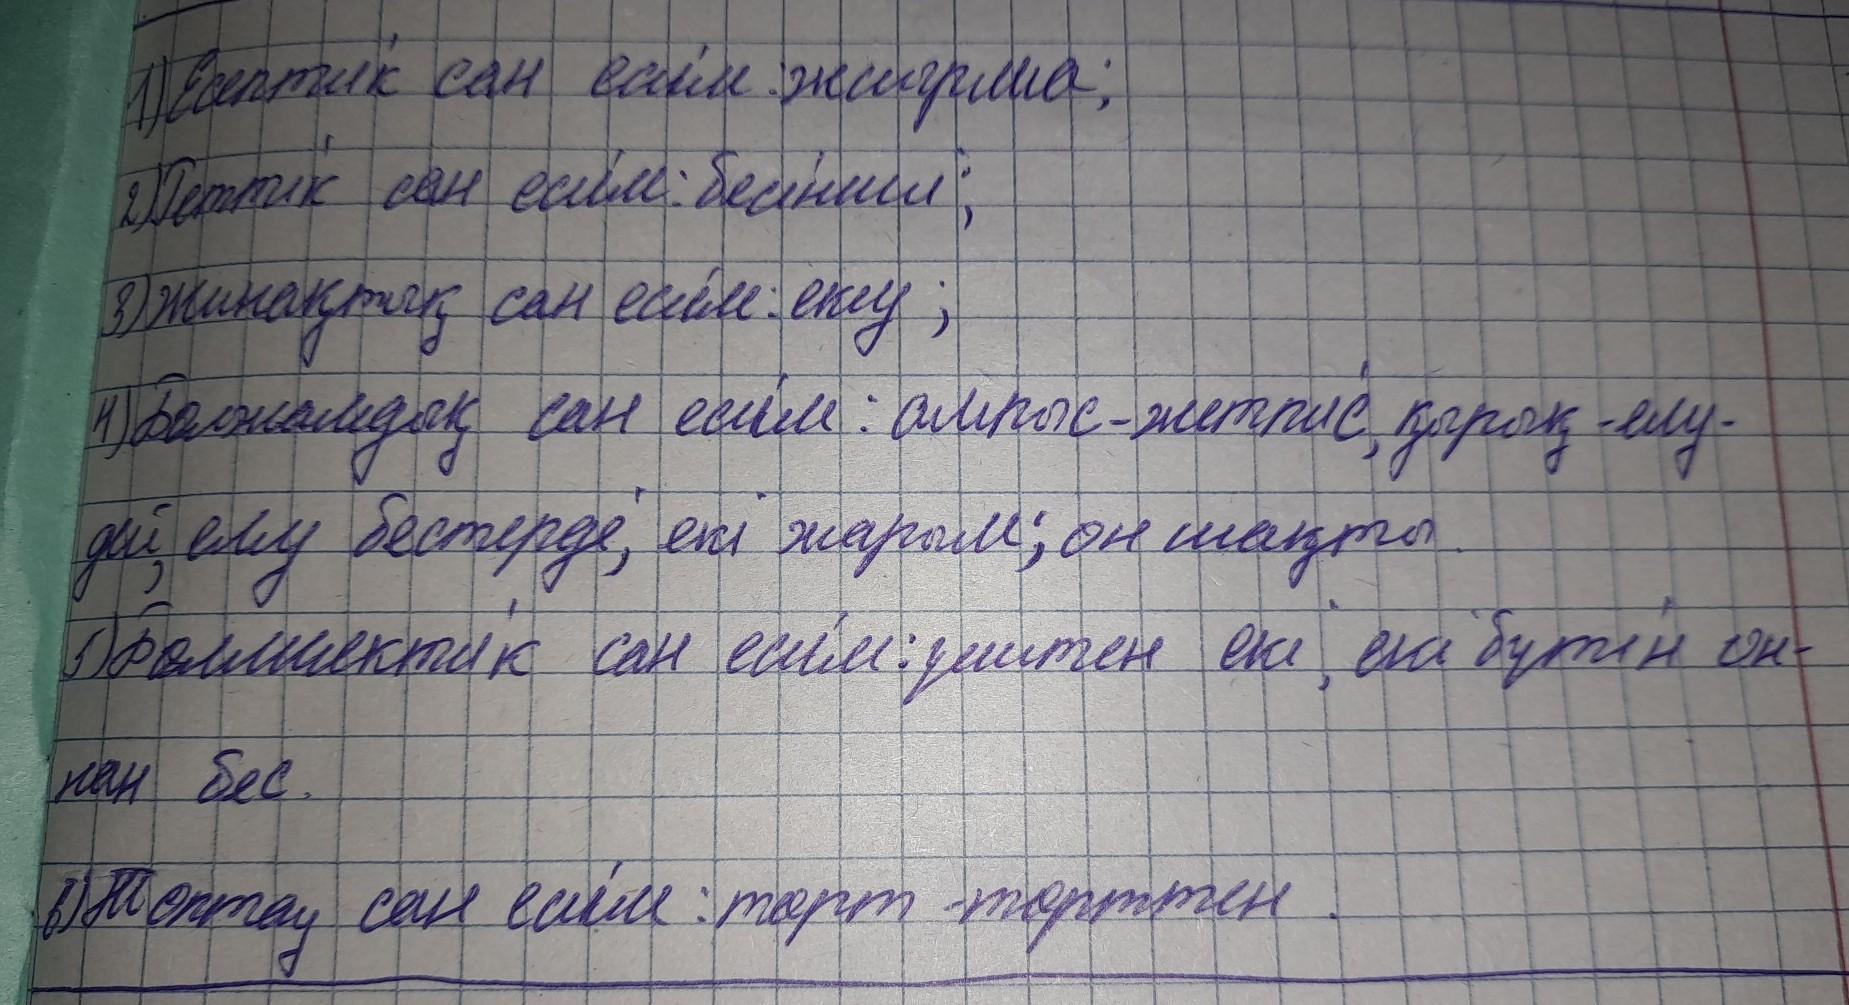 1) Есептік сан есім: жиырма;
2) Реттік сан есім: бесінші;
3) Жинақтық сан есім: екеу;
4) Болжамдық сан есім: алпыс-жетпіс, қырық-елу-
дей, елу бестерде, екі жарым; он шақты.
5) Бөлшектік сан есім: үштен екі, екі бүтін он-
нан бес.
6) Топтау сан есім: төрт-төрттен.